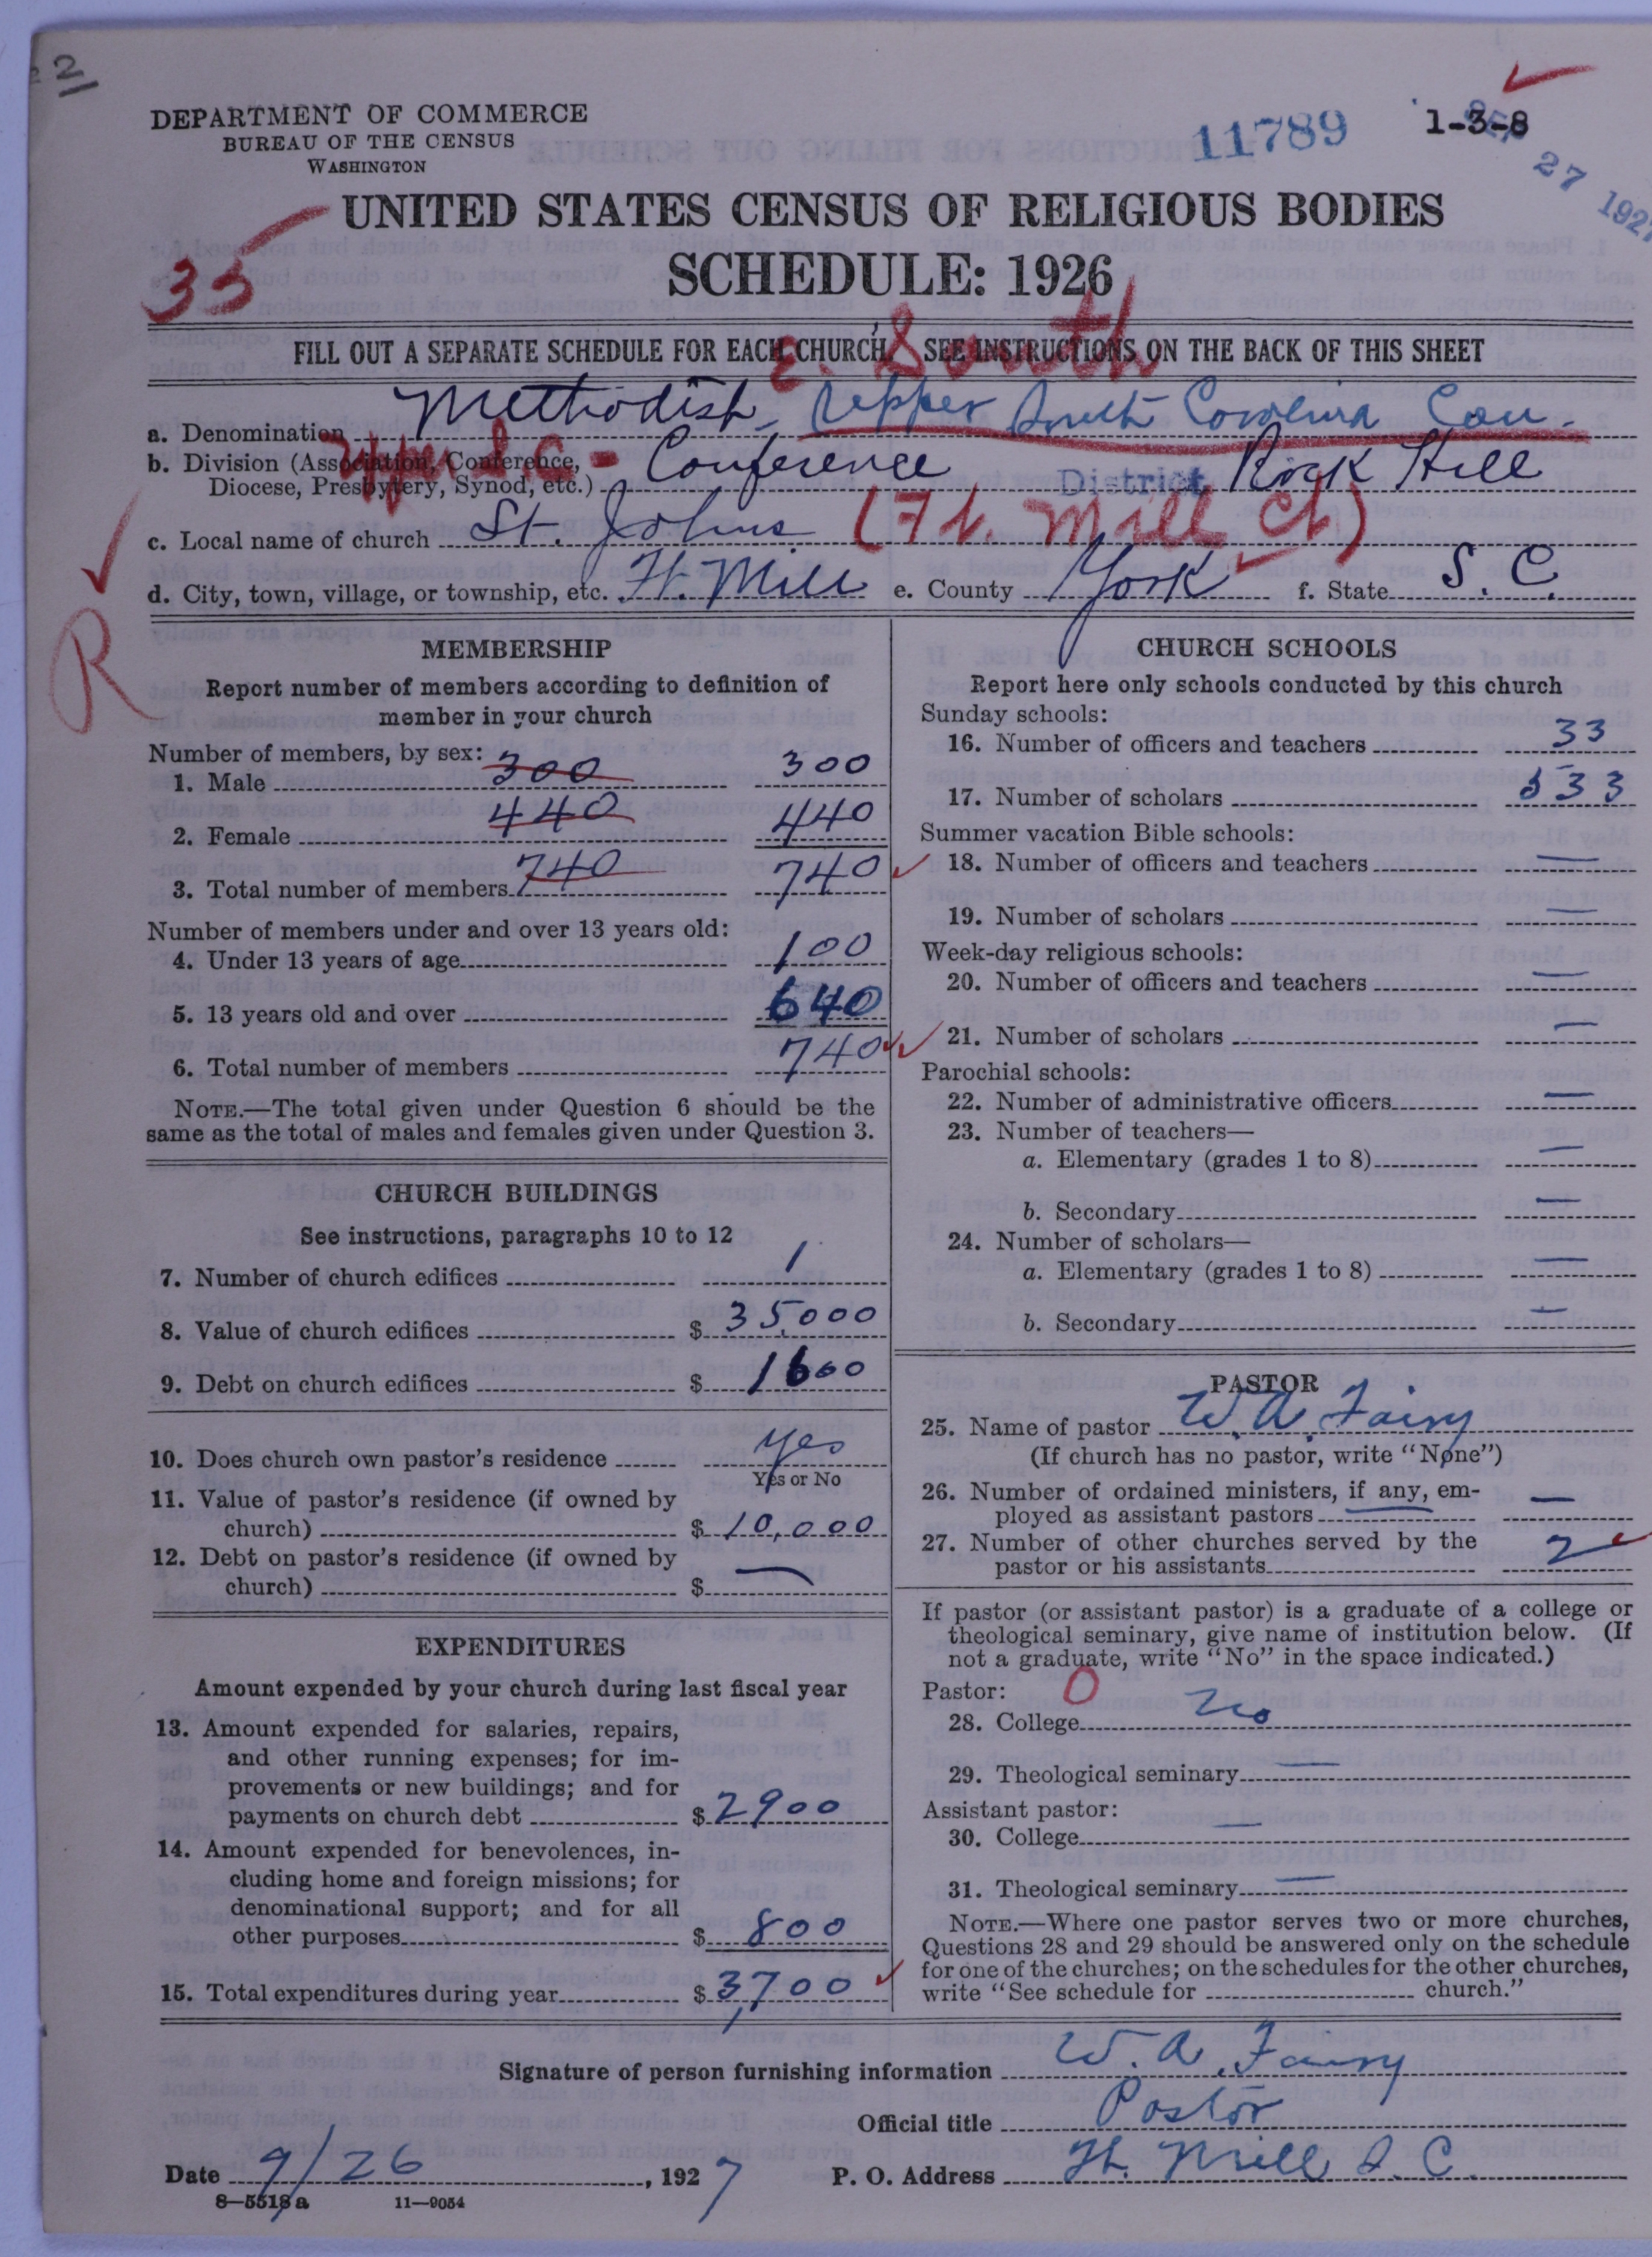 2
DEPARTMENT OF COMMERCE
BUREAU OF THE CENSUS
WASHINGTON
11789
1-3-8
SEP 27 1927
UNITED STATES CENSUS OF RELIGIOUS BODIES
SCHEDULE: 1926
35
FILL OUT A SEPARATE SCHEDULE FOR EACH CHURCH. SEE INSTRUCTIONS ON THE BACK OF THIS SHEET
E. South
a. Denomination Methodist - Upper South Carolina Con.
b. Division (Association, Conference, Upper S.C - Conference District Rock Hill
Diocese, Presbytery, Synod, etc.)
c. Local name of church St. Johns (Ft. Mill Ch)
d. City, town, village, or township, etc. Ft. Mill e. County York f. State S. C.
R
MEMBERSHIP
Report number of members according to definition of
member in your church
Number of members, by sex:
1. Male 300 300
2. Female 440 440
3. Total number of members 740 740
Number of members under and over 13 years old:
4. Under 13 years of age 100
5. 13 years old and over 640
6. Total number of members 740
NOTE.—The total given under Question 6 should be the
same as the total of males and females given under Question 3.
CHURCH BUILDINGS
See instructions, paragraphs 10 to 12
7. Number of church edifices 1
8. Value of church edifices $ 35,000
9. Debt on church edifices $ 1600
10. Does church own pastor's residence yes
Yes or No
11. Value of pastor's residence (if owned by
church) $ 10,000
12. Debt on pastor's residence (if owned by
church) $ —
EXPENDITURES
Amount expended by your church during last fiscal year
13. Amount expended for salaries, repairs,
and other running expenses; for im-
provements or new buildings; and for
payments on church debt $ 2900
14. Amount expended for benevolences, in-
cluding home and foreign missions; for
denominational support; and for all
other purposes $ 800
15. Total expenditures during year $ 3,700
CHURCH SCHOOLS
Report here only schools conducted by this church
Sunday schools:
16. Number of officers and teachers 33
17. Number of scholars 533
Summer vacation Bible schools:
18. Number of officers and teachers —
19. Number of scholars —
Week-day religious schools:
20. Number of officers and teachers —
21. Number of scholars —
Parochial schools:
22. Number of administrative officers —
23. Number of teachers—
a. Elementary (grades 1 to 8) —
b. Secondary —
24. Number of scholars—
a. Elementary (grades 1 to 8) —
b. Secondary —
PASTOR
25. Name of pastor W. A. Fairy
(If church has no pastor, write "None")
26. Number of ordained ministers, if any, em-
ployed as assistant pastors —
27. Number of other churches served by the
pastor or his assistants 2
If pastor (or assistant pastor) is a graduate of a college or
theological seminary, give name of institution below. (If
not a graduate, write "No" in the space indicated.)
Pastor: O
28. College No
29. Theological seminary —
Assistant pastor:
30. College —
31. Theological seminary —
NOTE.—Where one pastor serves two or more churches,
Questions 28 and 29 should be answered only on the schedule
for one of the churches; on the schedules for the other churches,
write "See schedule for church."
Signature of person furnishing information W. A. Fairy
Official title Pastor
Date 9/26, 1927 P. O. Address Ft. Mill S. C.
8—5518 a 11—9054